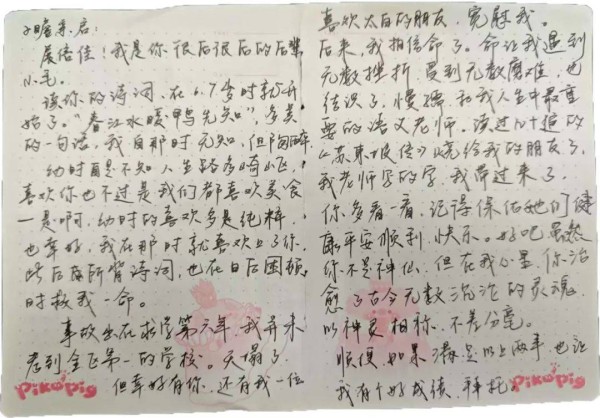 子瞻亲启：
展信佳！我是你很后很后的后辈
小毛。
读你的诗词，在6.7岁时就开
始了。“春江水暖鸭先知”，多美
的一句话，我自那时无知，但陶醉
幼时自是不知人生路多崎岖，
喜欢你也不过是我们都喜欢美食
—是啊，幼时的喜欢多是纯粹，
也幸好，我在那时就喜欢上了你，
此后反所背诗词，也在日后困顿
时救我一命。
事故出在求学第六年，我并未
考到全区第一的学校。天塌了。
但幸好有你，还有我一位
喜欢太白的朋友，宽慰我。
后来，我相信命了。命让我遇到
无数挫折，受到无数磨难，也
结识了，慢孺，和我人生中最重
要的语文老师。读过n十遍的
《苏东坡传》烧给我的朋友了，
我老师写的字，我带过来了，
你多看一看，记得保佑她们健
康平安顺利，快乐。好吧虽然
你不是神仙，但在我心里，你治
愈了古今无数沉沦的灵魂，
以神灵相称，不差分毫。
顺便，如果满足以上两事，也让
我有个好成绩，拜托。
Piko pig
Piko pig